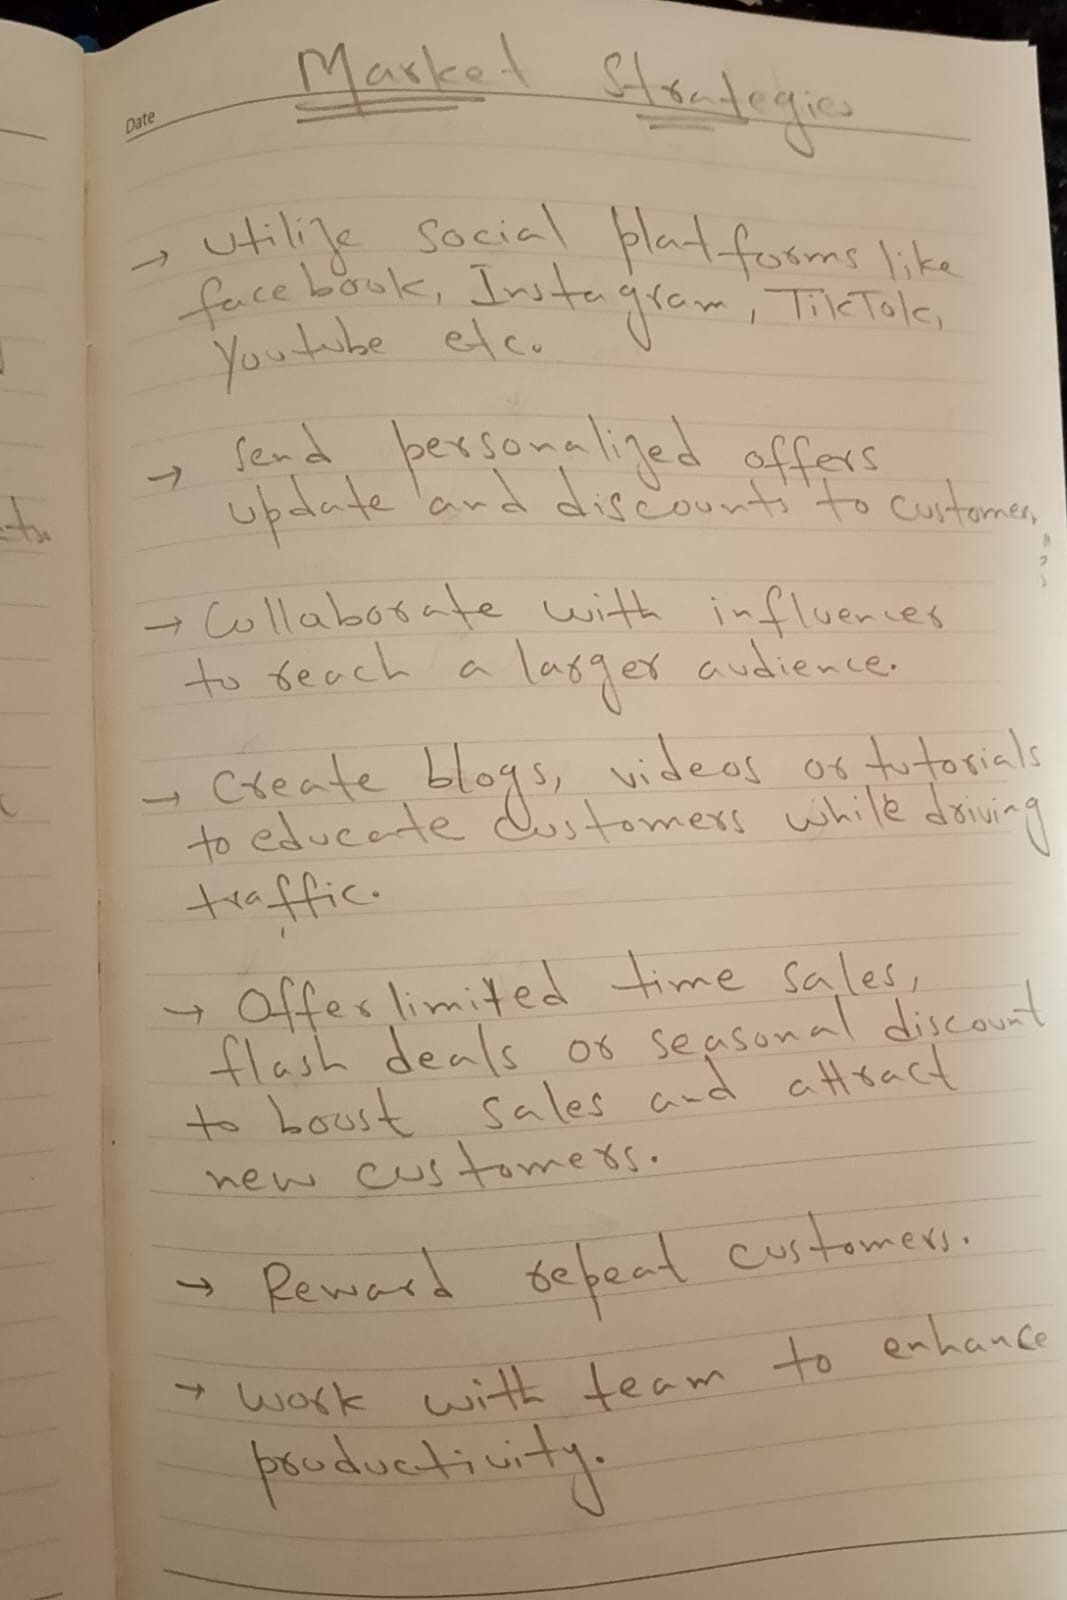 Market Strategies
Date
→ Utilize social platforms like
facebook, Instagram, TikTok,
Youtube etc.
→ Send personalized offers
update and discounts to customers
→ Collaborate with influencer
to reach a larger audience.
→ Create blogs, videos or tutorials
to educate customers while driving
traffic.
→ Offer limited time sales,
flash deals or seasonal discount
to boost sales and attract
new customers.
→ Reward repeat customers.
→ Work with team to enhance
productivity.